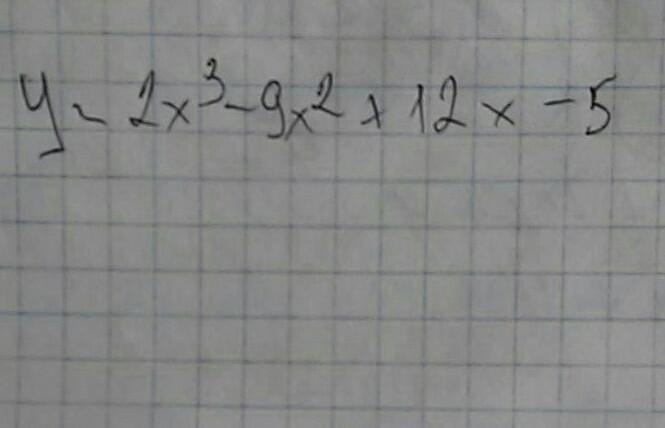 y = 2x³ - 9x² + 12x - 5